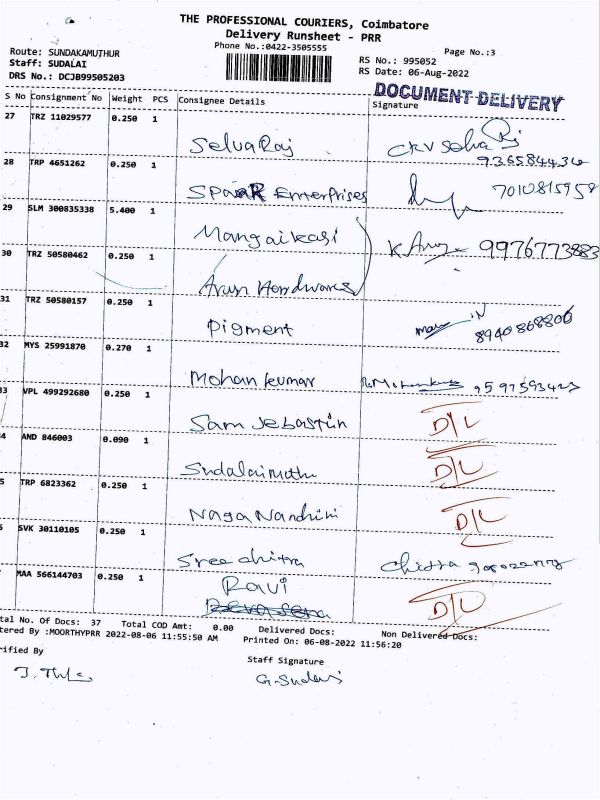 THE PROFESSIONAL COURIERS, Coimbatore
Delivery Runsheet - PRR
Phone No.:0422-3505555
Page No.:3
Route: SUNDAKAMUTHUR
Staff: SUDALAI
DRS No.: DCJB99505203
RS No.: 995052
RS Date: 06-Aug-2022
DOCUMENT DELIVERY
S No Consignment No Weight PCS Consignee Details Signature
27 TRZ 11029577 0.250 1
Selvaraj
9365844
28 TRP 4651262 0.250 1
Enterprises 7010815958
29 SLM 300835338 5.400 1
Mangaikasi
K 9976773883
30 TRZ 50580462 0.250 1
Arun Hardwares
31 TRZ 50580157 0.250 1
Pigment
8940868800
32 MYS 25991870 0.270 1
Mohan kumar
33 VPL 499292680 0.250 1
Sam Jebastin D/L
4 AND 846003 0.090 1
Sudalaimuthu D/L
5 TRP 6823362 0.250 1
Naga Nandhini D/L
6 SVK 30110105 0.250 1
Sree chitra Chitra
MAA 566144703 0.250 1
Ravi D/L
tal No. Of Docs: 37 Total COD Amt: 0.00 Delivered Docs: Non Delivered Docs:
tered By :MOORTHYPRR 2022-08-06 11:55:50 AM Printed On: 06-08-2022 11:56:20
rified By Staff Signature